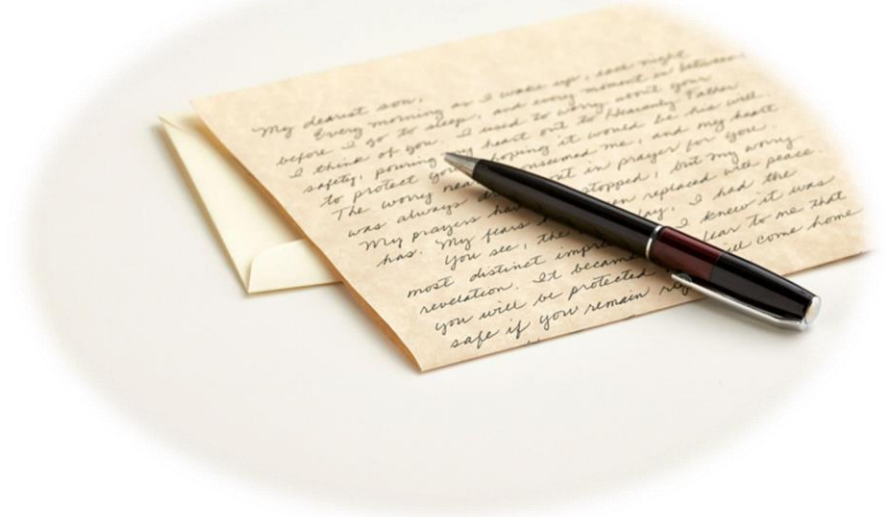 My dearest son,
Every morning as I wake up, each night
before I go to sleep, and every moment in between,
I think of you. I used to worry about your
safety, pouring my heart out to Heavenly Father
to protect you, hoping it would be his will.
The worry near consumed me, and my heart
was always in prayer for you.
My prayers stopped, but my worry
has. My fears replaced with peace.
You see, the day, I had the
most distinct I knew it was
revelation. It became to me that
you will be protected come home
safe if you remain